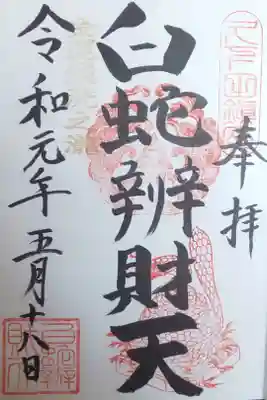 奉拝
白蛇辨財天
令和元年五月十八日